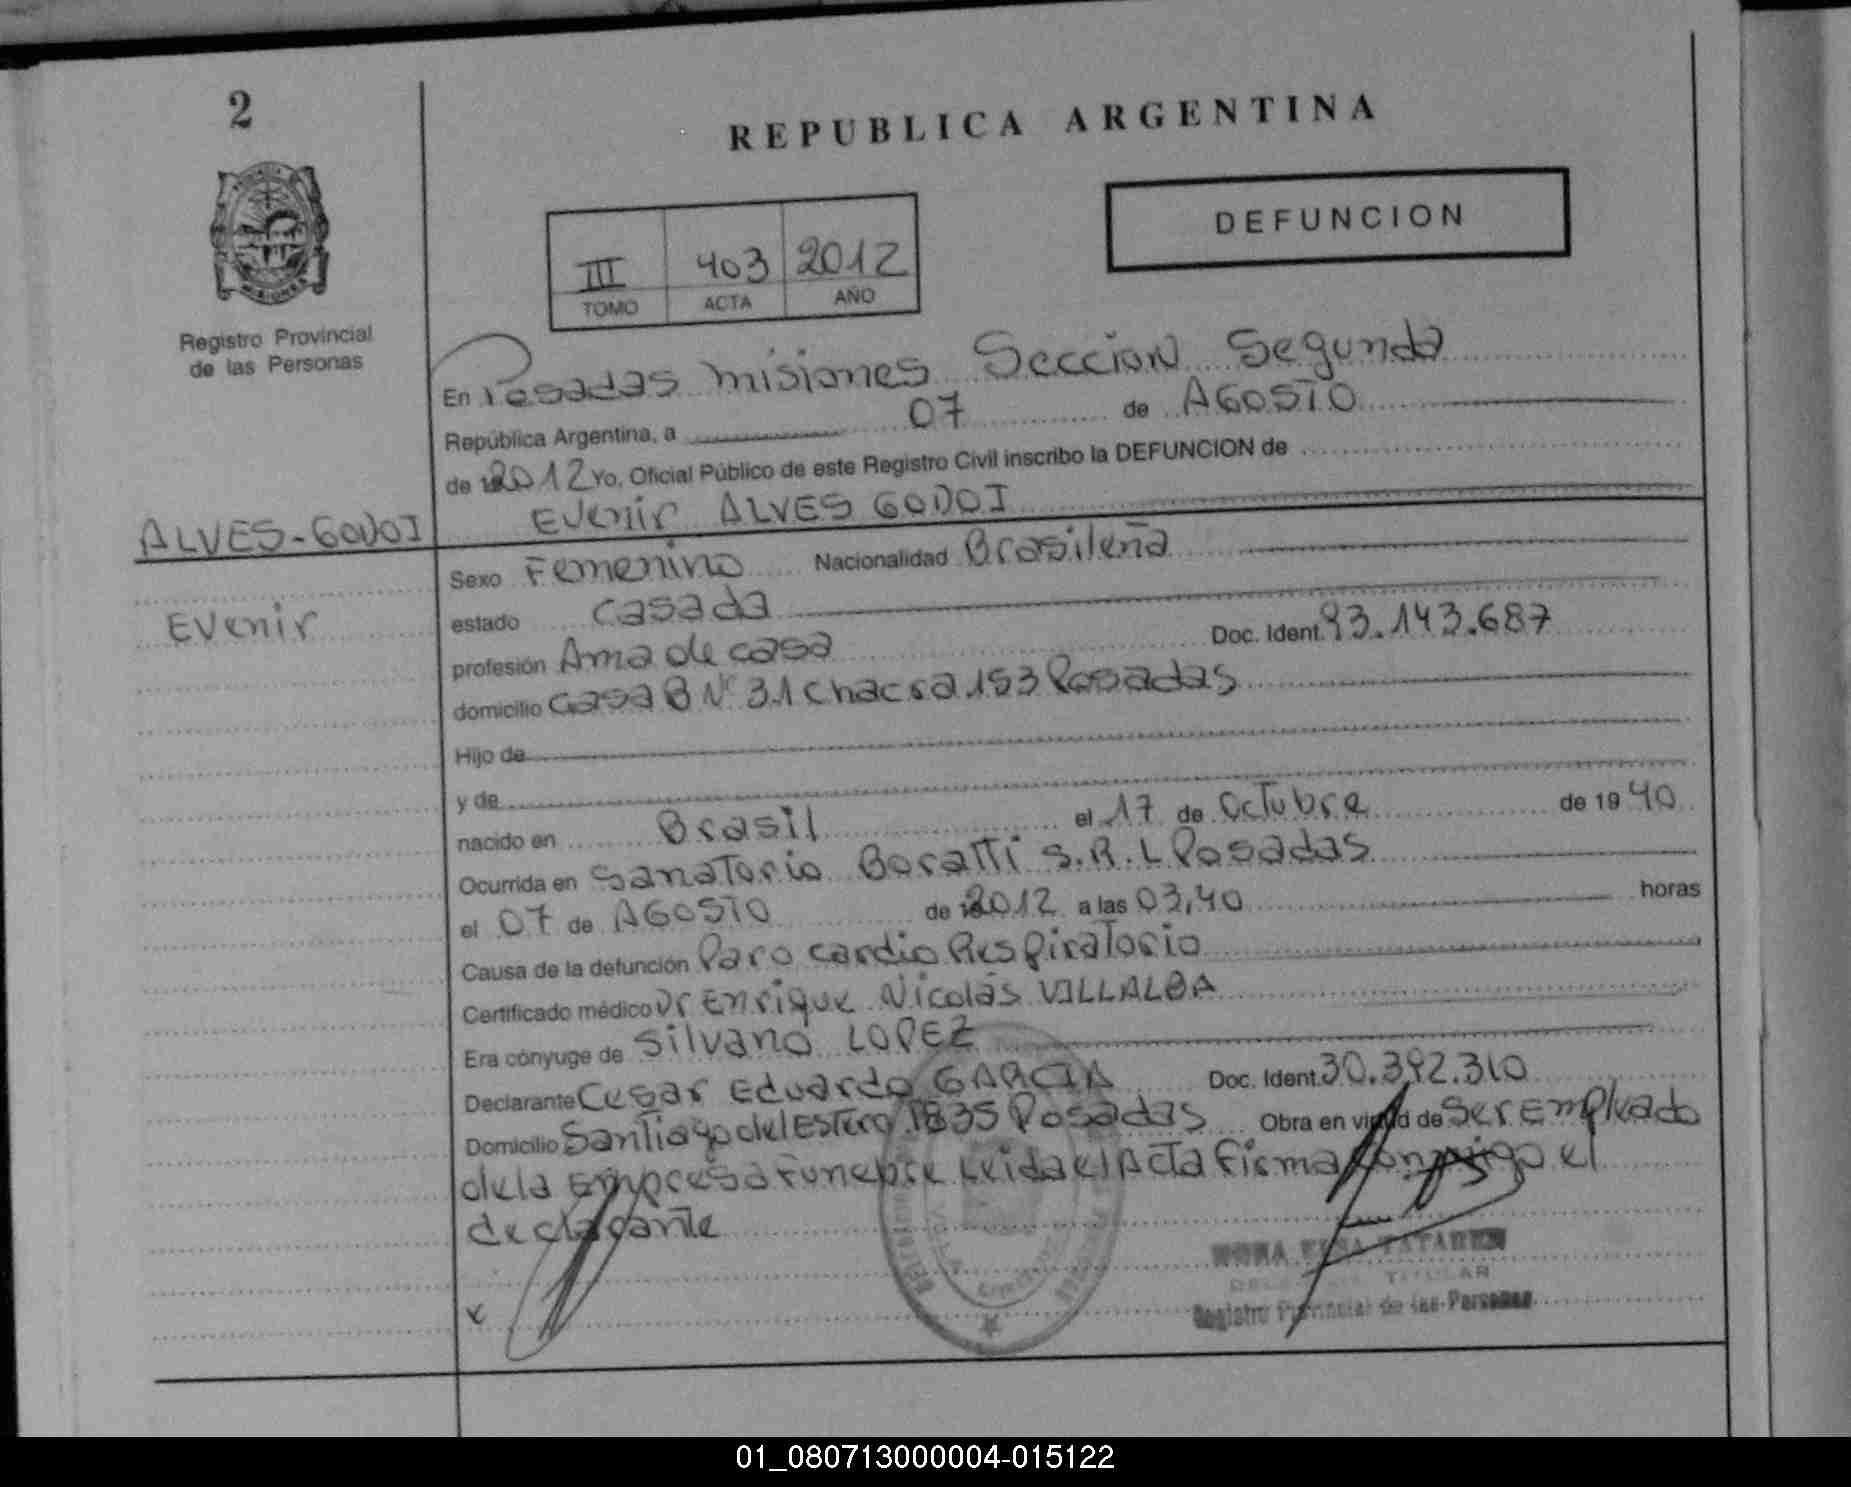 2
REPUBLICA ARGENTINA
DEFUNCION
III 403 2012
TOMO ACTA AÑO
Registro Provincial
de las Personas
En Posadas misiones Seccion Segunda
República Argentina, a 07 de AGOSTO
de 2012 Yo, Oficial Público de este Registro Civil inscribo la DEFUNCION de
ALVES-GODOI
Evenir ALVES GODOI
Sexo Femenino Nacionalidad Brasileña
Evenir
estado casada
profesión Ama de casa Doc. Ident. 93.143.687
domicilio casa B Nº 31 chacra 153 Posadas
Hijo de
y de
nacido en Brasil el 17 de Octubre de 1940
Ocurrida en Sanatorio Boratti S.R.L Posadas
el 07 de AGOSTO de 2012 a las 03,40 horas
Causa de la defunción Paro cardio Respiratorio
Certificado médico Dr Enrique Nicolás VILLALBA
Era cónyuge de Silvano LOPEZ
Declarante Cesar Eduardo GARCIA Doc. Ident. 30.392.310
Domicilio Santiago del Estero 1835 Posadas Obra en virtud de ser Empleado
de la Empresa Funebre Leida el Acta firma conmigo el
declarante
TITULAR
Registro Provincial de las Personas
01_080713000004-015122